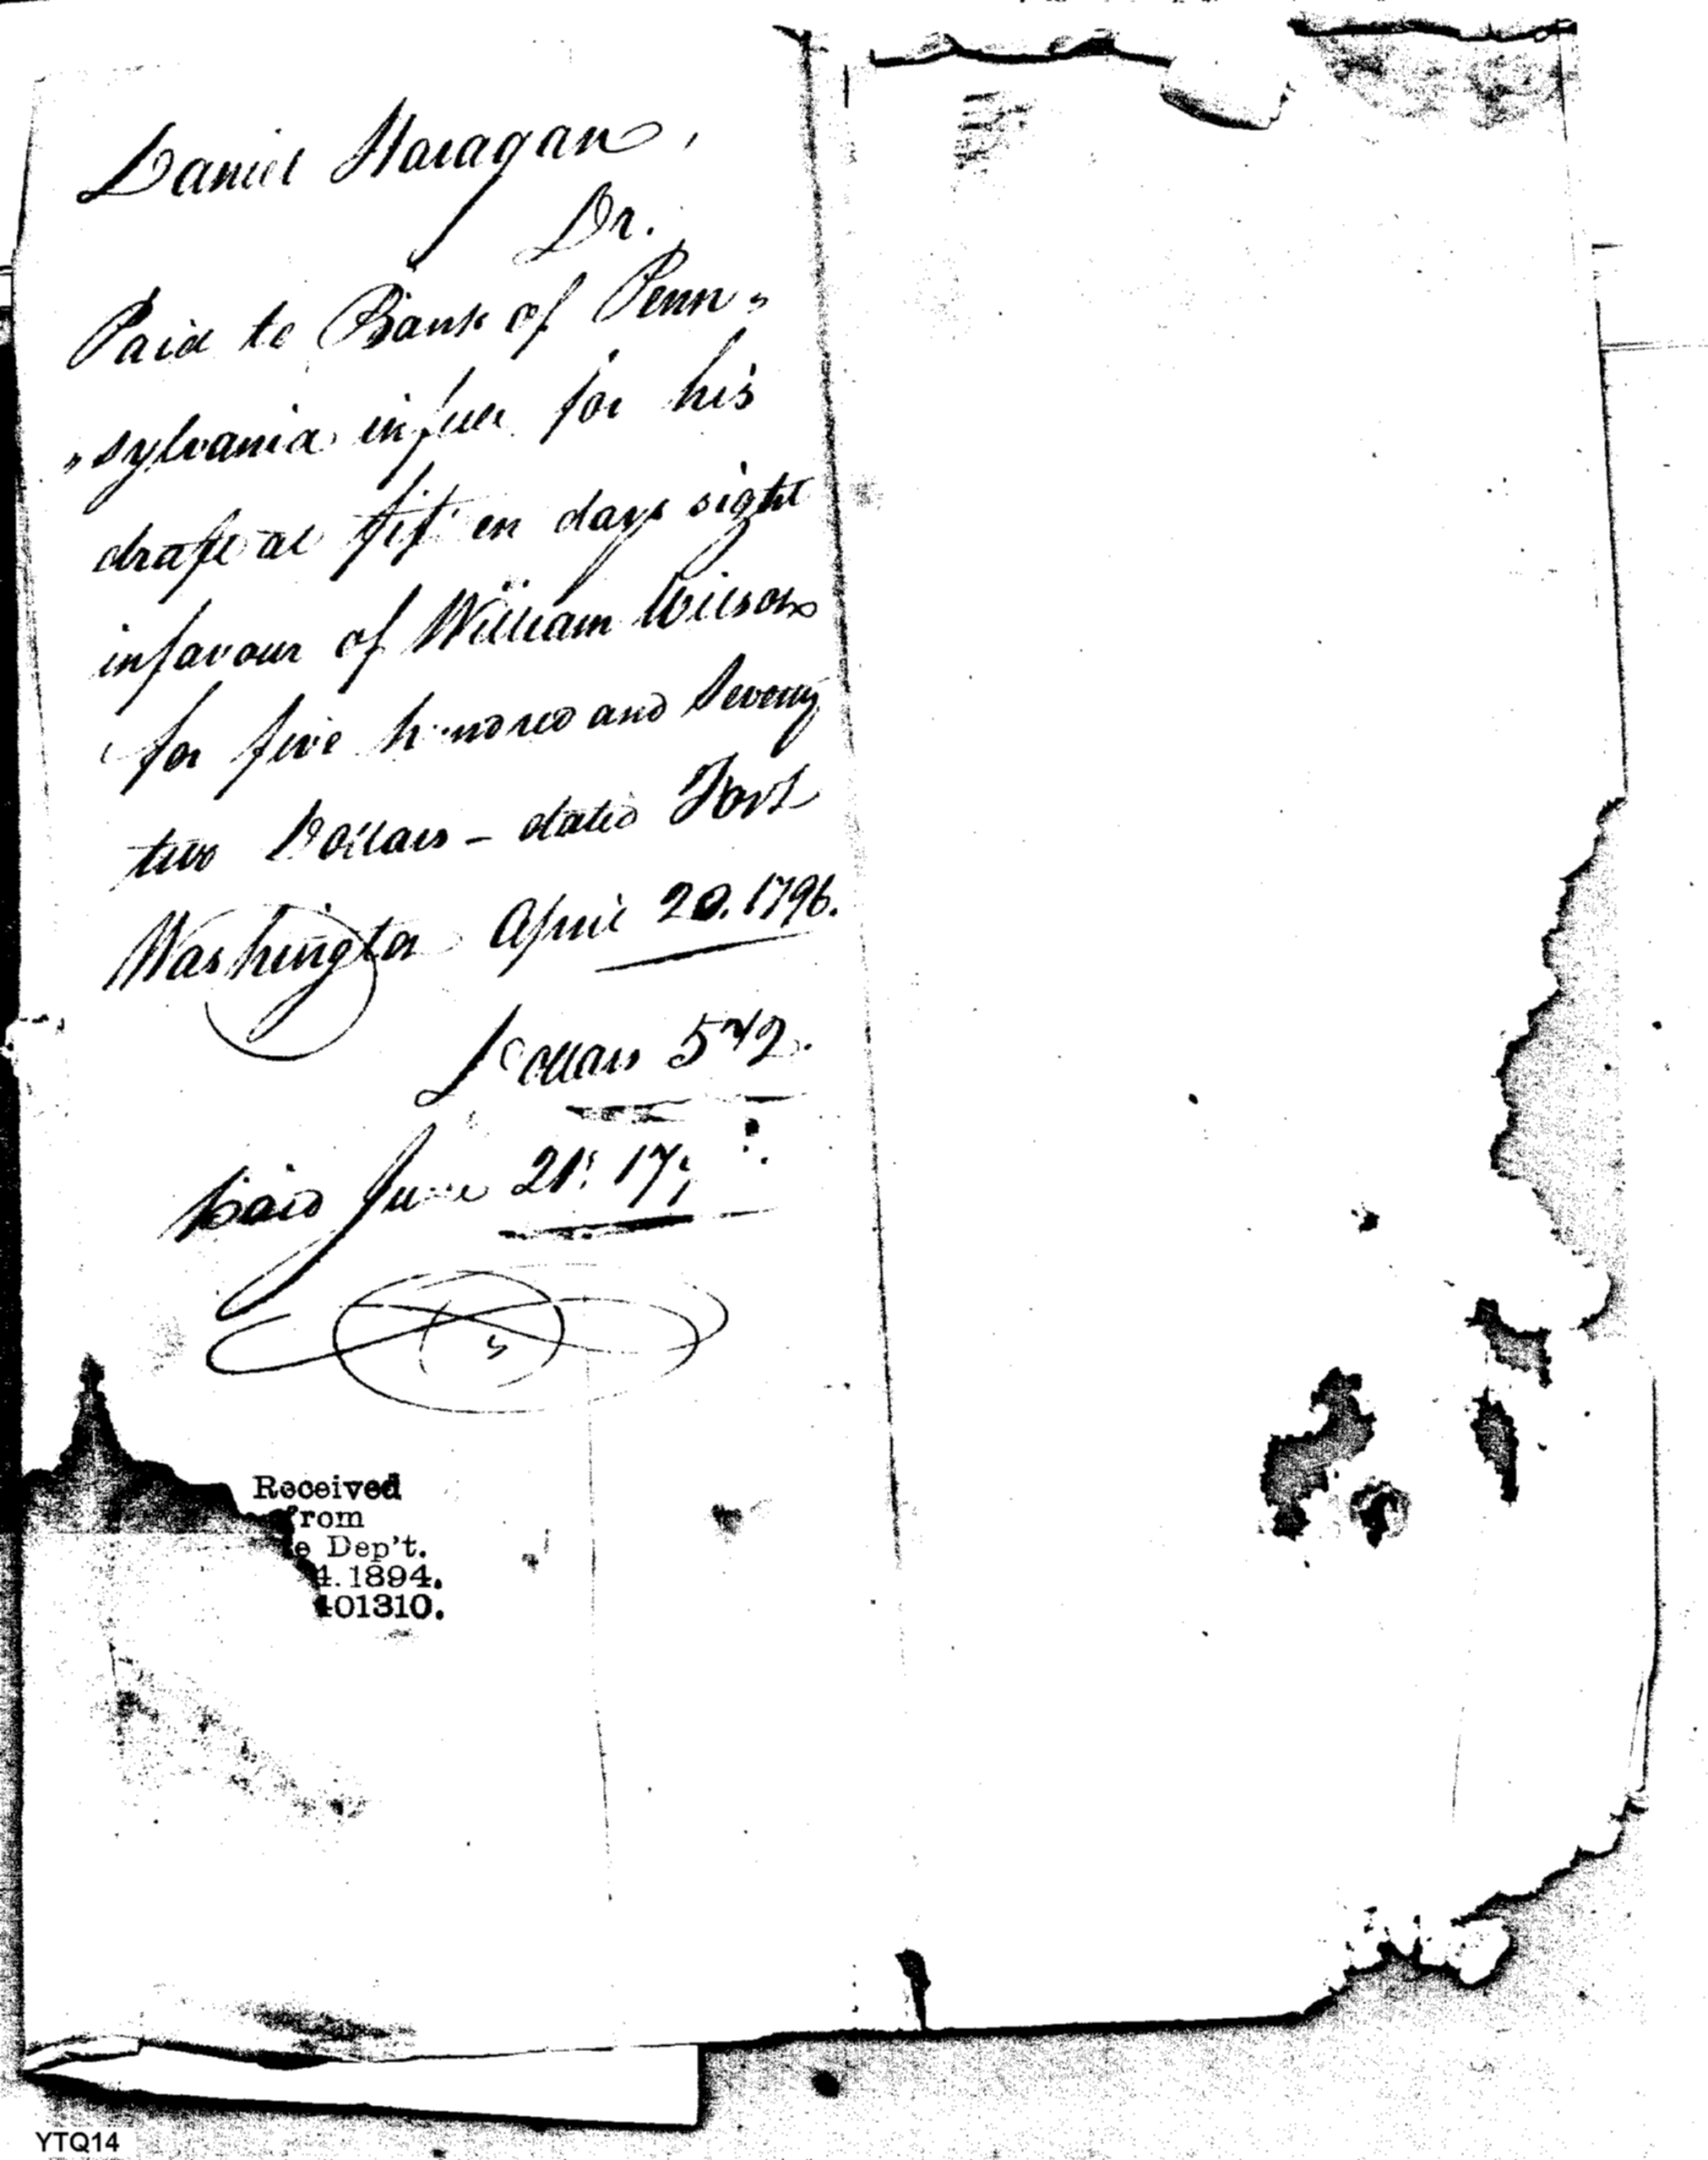 Daniel Haragan,
Dr.
Paid to Bank of Penn„
„sylvania in full for his
draft at fift en days sight
in favour of William Wilson
for five hundred and Seventy
two Dollars – dated Fort
Washington April 20. 1796.
Dollars 572.
Paid June 21st. 17
Received
from
e Dep't.
4.1894.
401310.
YTQ14